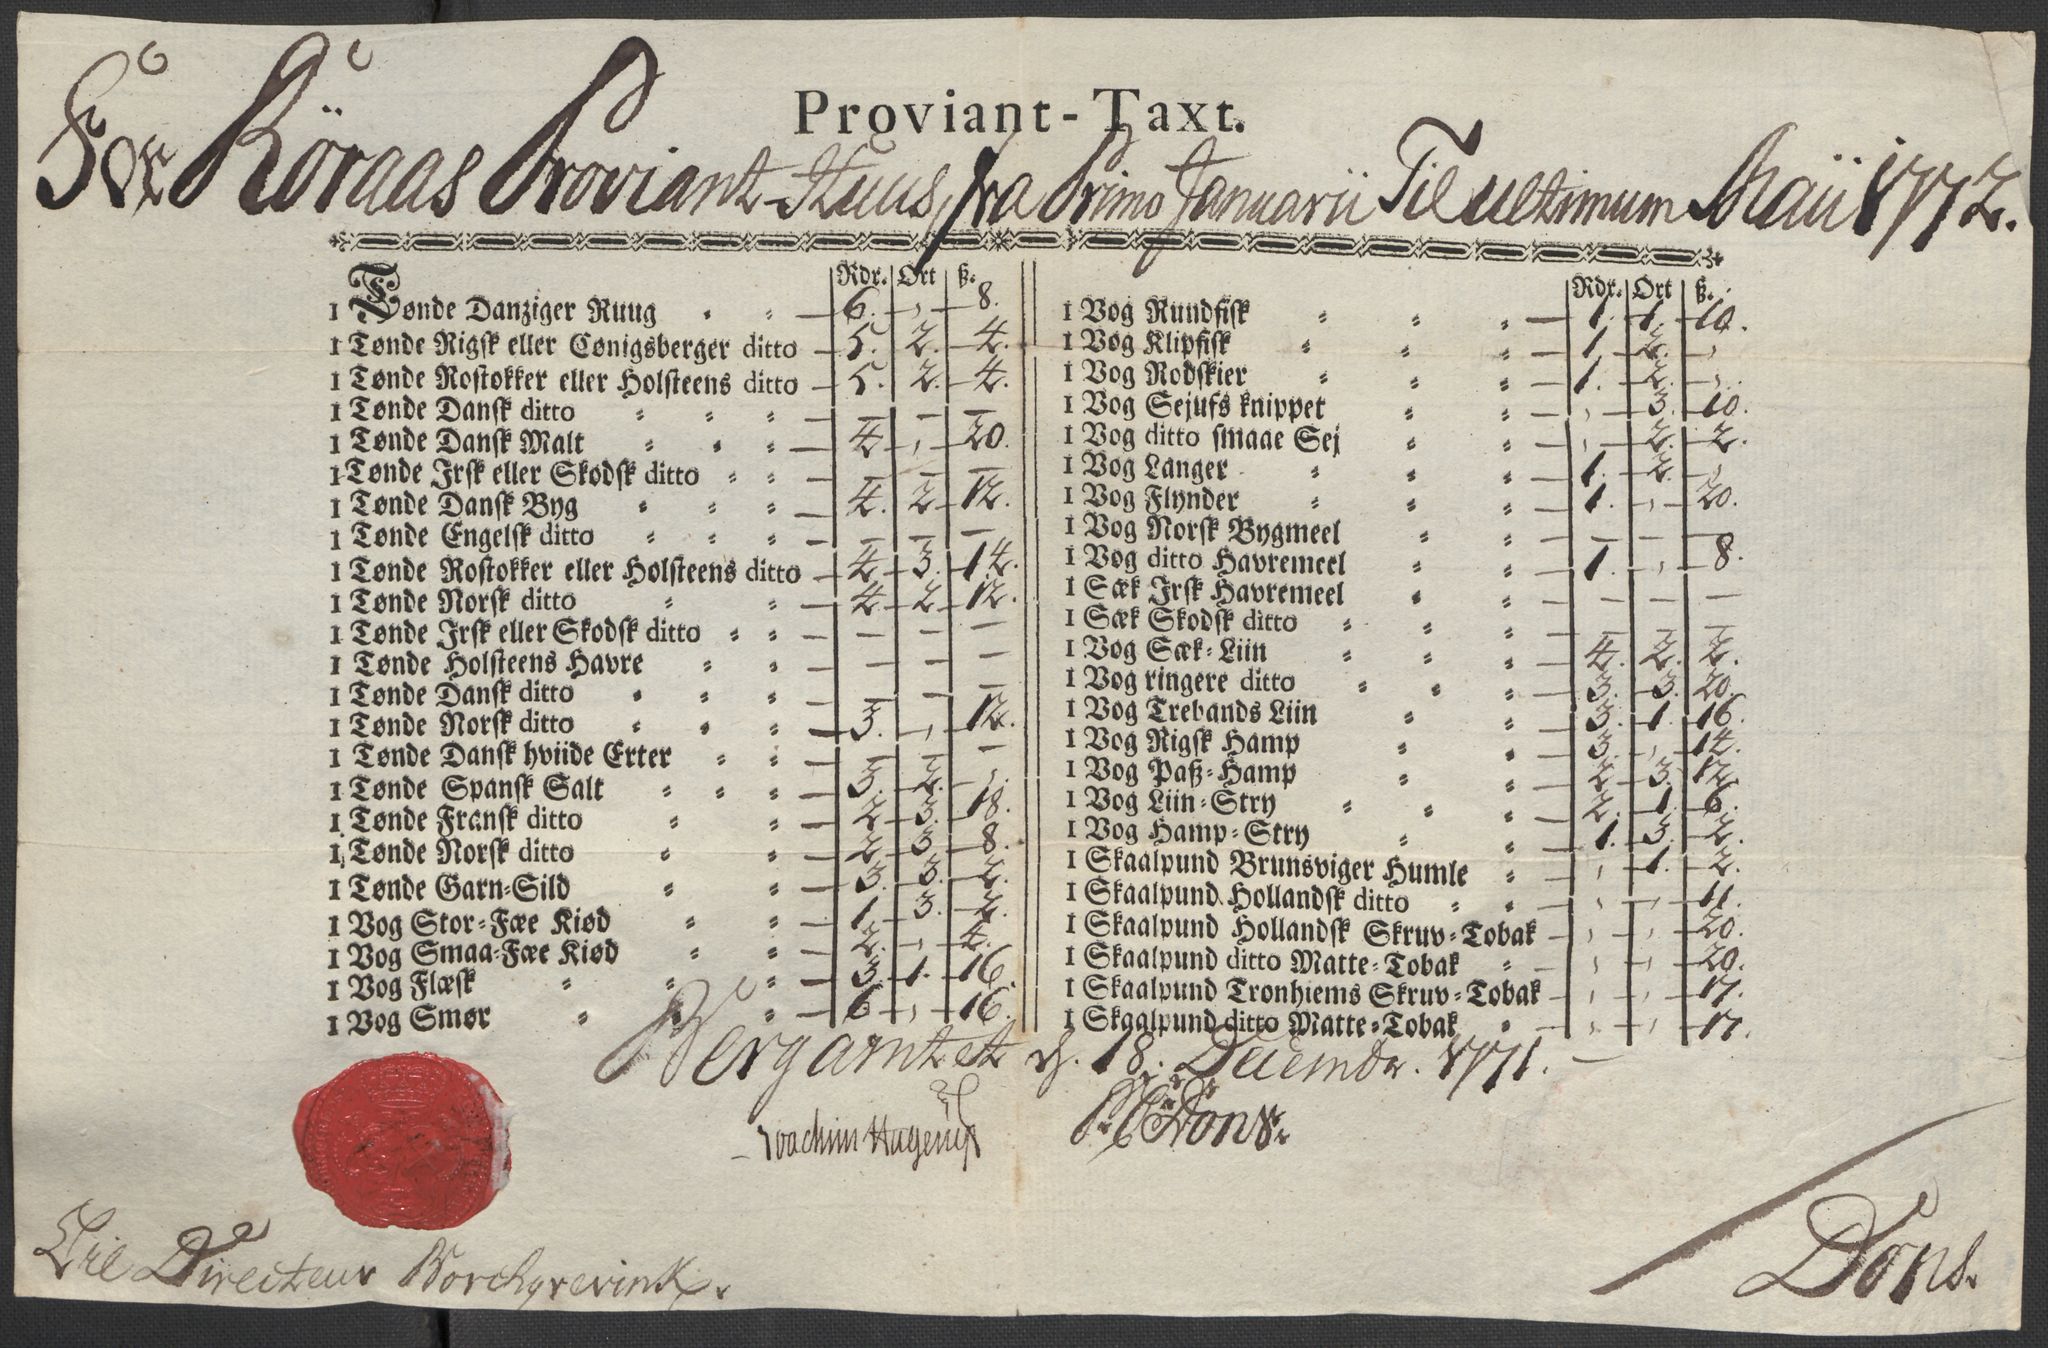 Proviant-Taxt.
For Röraas Proviant-Huus, fra Primo Januarii Til ultimum Maii 1772.
Rdr. Ort ß.
1 Tønde Danziger Ruug 6. , 8.
1 Tønde Rigsk eller Cønigsberger ditto 5. 2. 4.
1 Tønde Rostokker eller Holsteens ditto 5. 2. 4.
1 Tønde Dansk ditto — — —
1 Tønde Dansk Malt 4. , 20.
1 Tønde Irsk eller Skodsk ditto — — —
1 Tønde Dansk Byg 4. 2. 12.
1 Tønde Engelsk ditto — — —
1 Tønde Rostokker eller Holsteens ditto 4. 3. 14.
1 Tønde Norsk ditto 4. 2. 12.
1 Tønde Irsk eller Skodsk ditto — — —
1 Tønde Holsteens Havre — — —
1 Tønde Dansk ditto — — —
1 Tønde Norsk ditto 3. , 12.
1 Tønde Dansk hviide Erter — — —
1 Tønde Spansk Salt 3. 2. ,
1 Tønde Fransk ditto 2. 3. 18.
1 Tønde Norsk ditto 2. 3. 8.
1 Tønde Garn-Sild 3. 3. 2.
1 Vog Stor-Fæe Kiød 1. 3. 2.
1 Vog Smaa-Fæe Kiød 2. , 4.
1 Vog Flæsk 3. 1. 16.
1 Vog Smør 6. , 16.
Rdr. Ort ß.
1 Vog Rundfisk 1. 1. 10.
1 Vog Klipfisk 1. 2. ,
1 Vog Rodskier 1. 2. ,
1 Vog Sejufs knippet , 3. 10.
1 Vog ditto smaae Sej , 2. 2.
1 Vog Langer 1. 2. ,
1 Vog Flynder 1. , 20.
1 Vog Norsk Bygmeel — — —
1 Vog ditto Havremeel 1. , 8.
1 Sæk Irsk Havremeel — — —
1 Sæk Skodsk ditto — — —
1 Vog Sæk-Liin 4. 2. 2.
1 Vog ringere ditto 3. 3. 20.
1 Vog Trebands Liin 3. 1. 16.
1 Vog Rigsk Hamp 3. , 14.
1 Vog Paß-Hamp 2. 3. 12.
1 Vog Liin-Stry 2. 1. 6.
1 Vog Hamp-Stry 1. 3. 2.
1 Skaalpund Brunsviger Humle , 1. 2.
1 Skaalpund Hollandsk ditto , , 11.
1 Skaalpund Hollandsk Skruv-Tobak , , 20.
1 Skaalpund ditto Matte-Tobak , , 20.
1 Skaalpund Trønhiems Skruv-Tobak , , 17.
1 Skaalpund ditto Matte-Tobak , , 17.
Bergamtet d. 18. Decembr. 1771.
Joachim Hagerup
Dons.
Til Directeur Borchgrevink.
Dons.